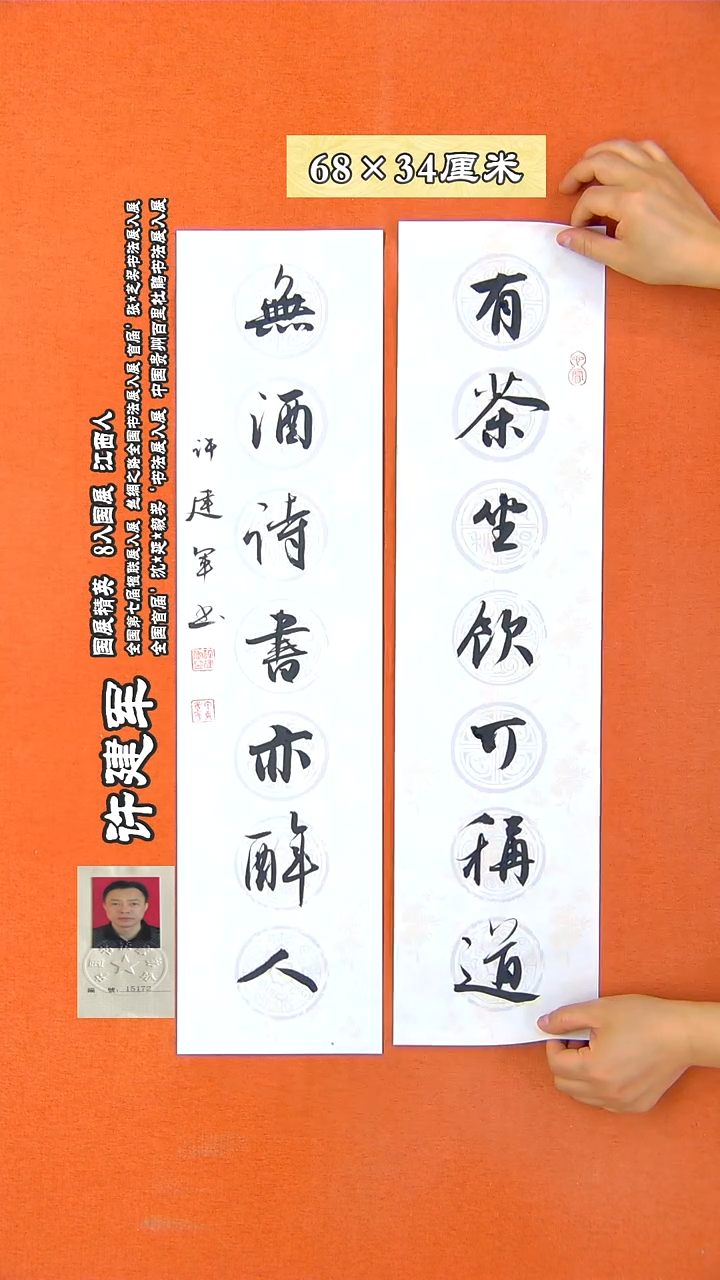 68×34厘米
有茶坐饮可稱道
無酒诗書亦醉人
许建军书
许建军
国展精英 8入国展 江西人
全国第七届楹联展入展 丝绸之路全国书法展入展 首届‘张★芝奖书法展入展
全国首届‘沈★延★毅奖‘书法展入展 中国贵州百里杜鹃书法展入展
15172